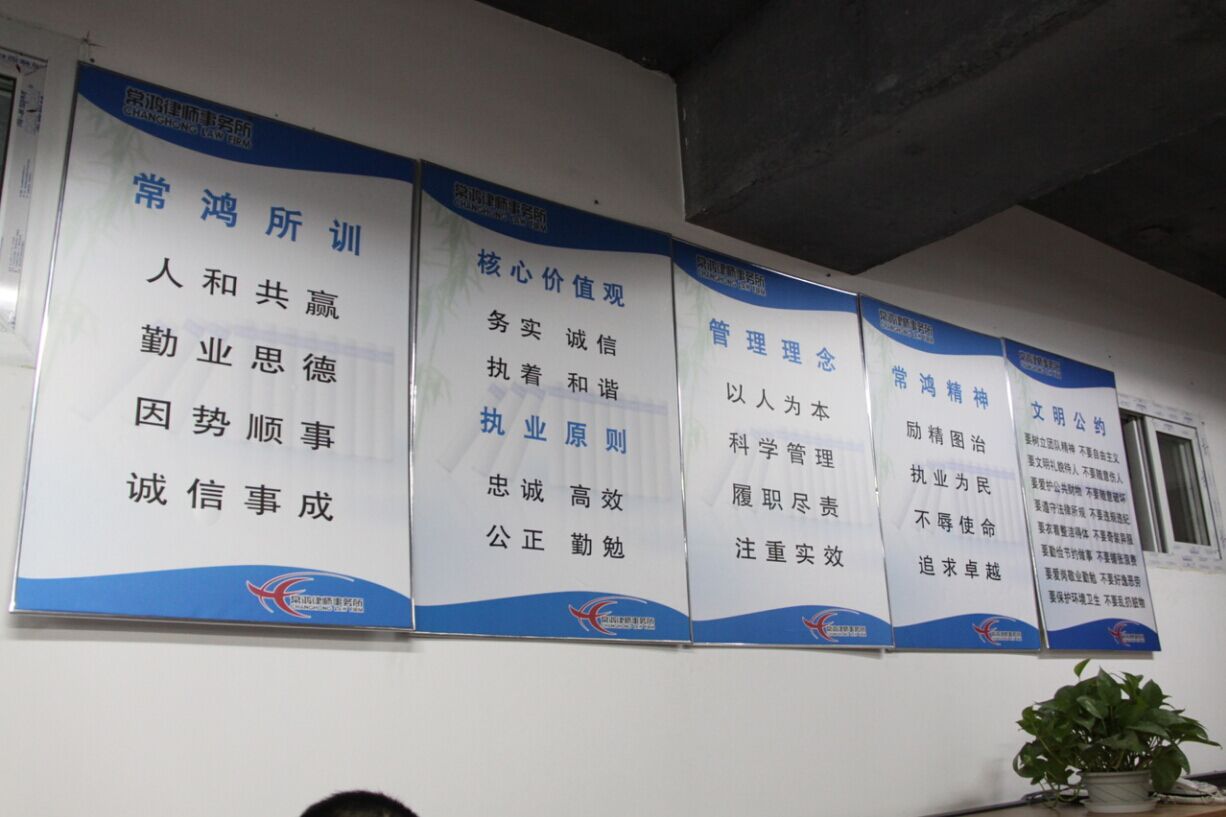 常鸿律师事务所
CHANGHONG LAW FIRM
常鸿所训
人和共赢
勤业思德
因势顺事
诚信事成
常鸿律师事务所
CHANGHONG LAW FIRM
常鸿律师事务所
CHANGHONG LAW FIRM
核心价值观
务实 诚信
执着 和谐
执业原则
忠诚 高效
公正 勤勉
常鸿律师事务所
CHANGHONG LAW FIRM
常鸿律师事务所
CHANGHONG LAW FIRM
管理理念
以人为本
科学管理
履职尽责
注重实效
常鸿律师事务所
常鸿律师事务所
CHANGHONG LAW FIRM
常鸿精神
励精图治
执业为民
不辱使命
追求卓越
常鸿律师事务所
常鸿律师事务所
文明公约
要树立团队精神 不要自由主义
要文明礼貌待人 不要随意伤人
要爱护公共财物 不要随意破坏
要遵守法律所规 不要违规违纪
要衣着整洁得体 不要奇装异服
要勤俭节约做事 不要铺张浪费
要爱岗敬业勤勉 不要好逸恶劳
要保护环境卫生 不要乱扔脏物